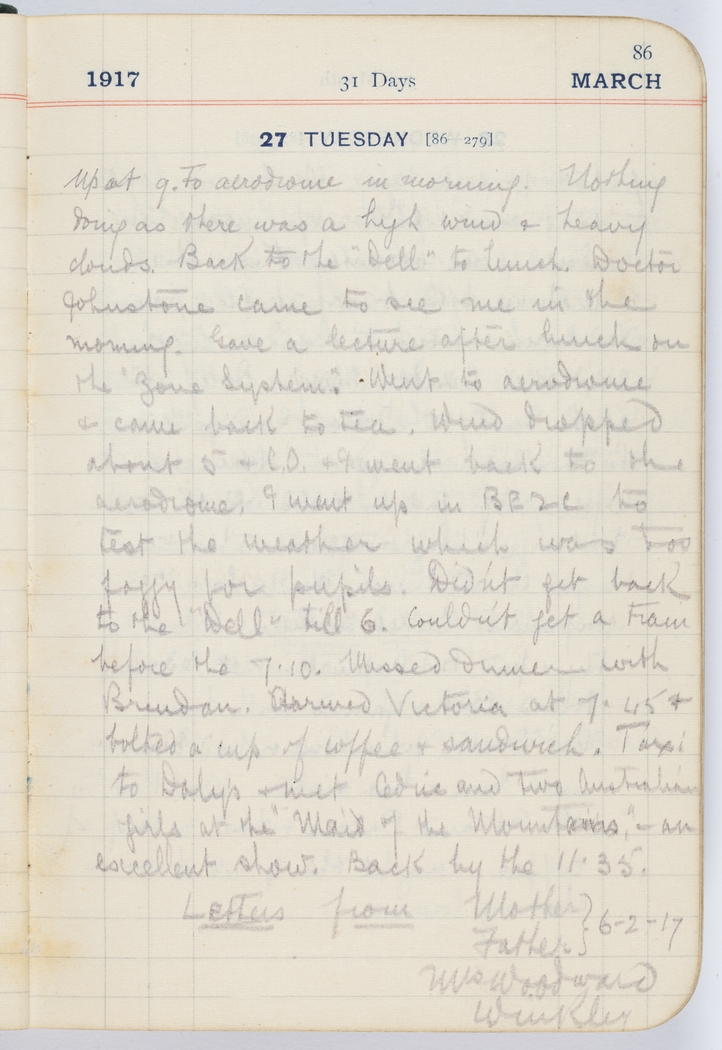 86
1917 31 Days MARCH
27 TUESDAY [86-279]
Up at 9. To aerodrome in morning. Nothing
doing as there was a high wind & heavy
clouds. Back to the "Dell" to lunch. Doctor
Johnstone came to see me in the
morning. Gave a lecture after lunch on
the "Zone System". Went to aerodrome
& came back to tea. Wind dropped
about 5 & C.O. & I went back to the
aerodrome. I went up in BE2C to
test the weather which was too
foggy for pupils. Didn't get back
to the "Dell" till 6. Couldn't get a train
before the 7.10. Missed dinner with
Brendan. Arrived Victoria at 7.45 &
bolted a cup of coffee & sandwich. Taxi
to Daly's & met Cedric and two Australian
girls at the "Maid of the Mountains," - an
excellent show. Back by the 11.35.
Letters from Mother } 6-2-17
Father }
Mrs Woodward
Winkley